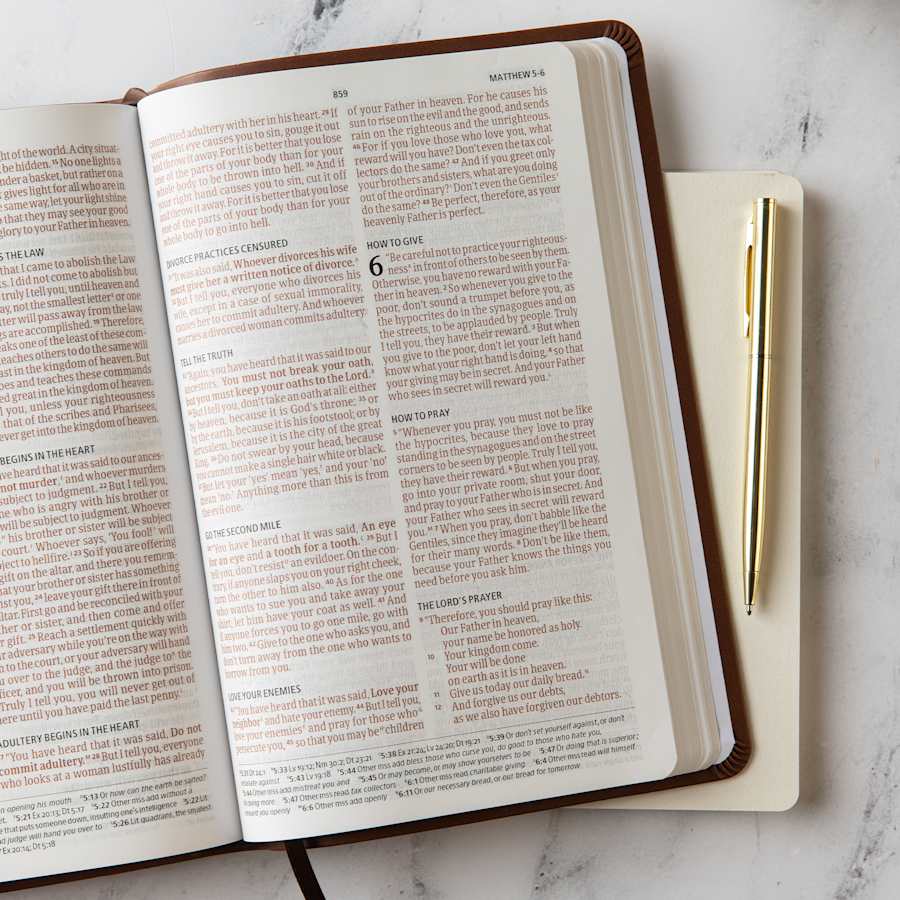 ht of the world. A city situat-
be hidden. ¹⁵ No one lights a
nder a basket, but rather on a
gives light for all who are in
same way, let your light shine
so that they may see your good
glory to your Father in heaven.
S THE LAW
that I came to abolish the Law
s. I did not come to abolish but
truly I tell you, until heaven and
ay, not the smallest letter or one
tter will pass away from the law
gs are accomplished. ¹⁹ Therefore,
eaks one of the least of these
eaches others to do the same will
st in the kingdom of heaven. But
oes and teaches these commands
ed great in the kingdom of heaven.
l you, unless your righteousness
that of the scribes and Pharisees,
ever get into the kingdom of heaven.
BEGINS IN THE HEART
ve heard that it was said to our ances-
not murder, and whoever murders
subject to judgment. ²² But I tell you,
one who is angry with his brother or
will be subject to judgment. Whoever
his brother or sister will be subject
court. Whoever says, 'You fool!' will
ject to hellfire. ²³ So if you are offering
gift on the altar, and there you remem-
that your brother or sister has something
nst you, ²⁴ leave your gift there in front of
altar. First go and be reconciled with your
her or sister, and then come and offer
r gift. ²⁵ Reach a settlement quickly with
r adversary while you're on the way with
to the court, or your adversary will hand
over to the judge, and the judge to the
icer, and you will be thrown into prison.
Truly I tell you, you will never get out of
here until you have paid the last penny.
ADULTERY BEGINS IN THE HEART
"You have heard that it was said, Do not
commit adultery. ²⁸ But I tell you, everyone
who looks at a woman lustfully has already
n opening his mouth 5:13 Or how can the earth be salted?
5:21 Ex 20:13; Dt 5:17 5:22 Other mss add without a
e that puts someone down, insulting one's intelligence 5:22 Lit
d judge will hand you over to 5:26 Lit quadrans, the smallest
Ex 20:14; Dt 5:18
859
MATTHEW 5-6
committed adultery with her in his heart. ²⁹ If
your right eye causes you to sin, gouge it out
and throw it away. For it is better that you lose
one of the parts of your body than for your
whole body to be thrown into hell. ³⁰ And if
your right hand causes you to sin, cut it off
and throw it away. For it is better that you lose
one of the parts of your body than for your
whole body to go into hell.
DIVORCE PRACTICES CENSURED
"It was also said, Whoever divorces his wife
must give her a written notice of divorce.
But I tell you, everyone who divorces his
wife, except in a case of sexual immorality,
causes her to commit adultery. And whoever
marries a divorced woman commits adultery.
TELL THE TRUTH
"Again, you have heard that it was said to our
ancestors, You must not break your oath,
but you must keep your oaths to the Lord.
But I tell you, don't take an oath at all: either
by heaven, because it is God's throne; ³⁵ or
by the earth, because it is his footstool; or by
Jerusalem, because it is the city of the great
King. ³⁶ Do not swear by your head, because
you cannot make a single hair white or black.
But let your 'yes' mean 'yes,' and your 'no'
mean 'no.' Anything more than this is from
the evil one.
GO THE SECOND MILE
"You have heard that it was said, An eye
for an eye and a tooth for a tooth. ³⁹ But I
tell you, don't resist an evildoer. On the con-
trary, if anyone slaps you on your right cheek,
turn the other to him also. ⁴⁰ As for the one
who wants to sue you and take away your
shirt, let him have your coat as well. ⁴¹ And
if anyone forces you to go one mile, go with
him two. ⁴² Give to the one who asks you, and
don't turn away from the one who wants to
borrow from you.
LOVE YOUR ENEMIES
"You have heard that it was said, Love your
neighbor and hate your enemy. ⁴⁴ But I tell you,
love your enemies and pray for those who
persecute you, ⁴⁵ so that you may be children
of your Father in heaven. For he causes his
sun to rise on the evil and the good, and sends
rain on the righteous and the unrighteous.
⁴⁶ For if you love those who love you, what
reward will you have? Don't even the tax col-
lectors do the same? ⁴⁷ And if you greet only
your brothers and sisters, what are you doing
out of the ordinary? Don't even the Gentiles
do the same? ⁴⁸ Be perfect, therefore, as your
heavenly Father is perfect.
HOW TO GIVE
6 "Be careful not to practice your righteous-
ness in front of others to be seen by them.
Otherwise, you have no reward with your Fa-
ther in heaven. ² So whenever you give to the
poor, don't sound a trumpet before you, as
the hypocrites do in the synagogues and on
the streets, to be applauded by people. Truly
I tell you, they have their reward. ³ But when
you give to the poor, don't let your left hand
know what your right hand is doing, ⁴ so that
your giving may be in secret. And your Father
who sees in secret will reward you.
HOW TO PRAY
⁵ "Whenever you pray, you must not be like
the hypocrites, because they love to pray
standing in the synagogues and on the street
corners to be seen by people. Truly I tell you,
they have their reward. ⁶ But when you pray,
go into your private room, shut your door,
and pray to your Father who is in secret. And
your Father who sees in secret will reward
you. ⁷ When you pray, don't babble like the
Gentiles, since they imagine they'll be heard
for their many words. ⁸ Don't be like them,
because your Father knows the things you
need before you ask him.
THE LORD'S PRAYER
⁹ "Therefore, you should pray like this:
Our Father in heaven,
your name be honored as holy.
10 Your kingdom come.
Your will be done
on earth as it is in heaven.
11 Give us today our daily bread.
12 And forgive us our debts,
as we also have forgiven our debtors.
5:31 Dt 24:1 5:33 Lv 19:12; Nm 30:2; Dt 23:21 5:38 Ex 21:24; Lv 24:20; Dt 19:21 5:39 Or don't set yourself against, or don't
retaliate against 5:43 Lv 19:18 5:44 Other mss add bless those who curse you, do good to those who hate you,
5:44 Other mss add mistreat you and 5:45 Or may become, or may show yourselves to be 5:47 Or doing that is superior;
doing more 5:47 Other mss read tax collectors 6:1 Other mss read charitable giving 6:4 Other mss read will himself
reward you openly 6:6 Other mss add openly 6:11 Or our necessary bread, or our bread for tomorrow